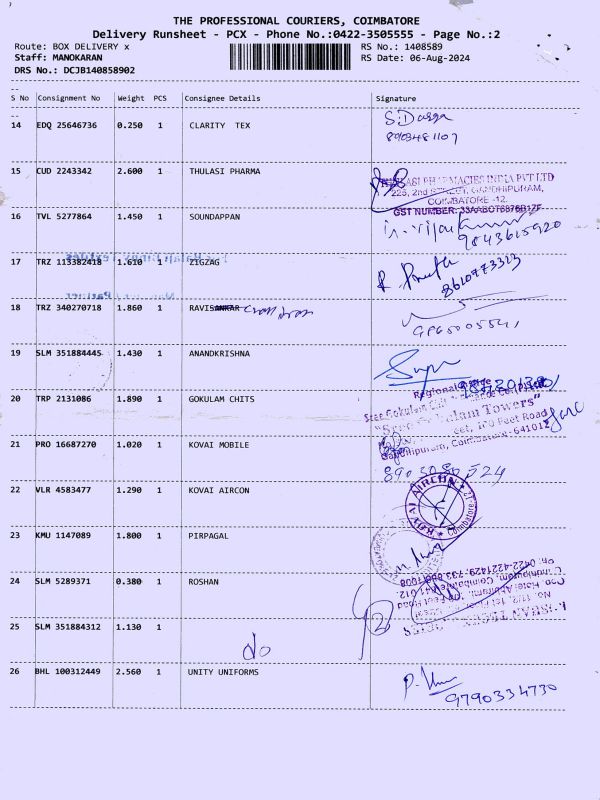 THE PROFESSIONAL COURIERS, COIMBATORE
Delivery Runsheet - PCX - Phone No.:0422-3505555 - Page No.:2
Route: BOX DELIVERY x
RS No.: 1408589
Staff: MANOKARAN
RS Date: 06-Aug-2024
DRS No.: DCJB140858902
S No Consignment No Weight PCS Consignee Details Signature
14 EDQ 25646736 0.250 1 CLARITY TEX
8903481107
15 CUD 2243342 2.600 1 THULASI PHARMA
PHARMACIES INDIA PVT LTD
226, 2nd STREET, GANDHIPURAM,
COIMBATORE -12.
GST NUMBER:
16 TVL 5277864 1.450 1 SOUNDAPPAN
9843615920
17 TRZ 113382418 1.610 1 ZIGZAG
8610773323
18 TRZ 340270718 1.860 1 RAVISANKAR
19 SLM 351884445 1.430 1 ANANDKRISHNA
20 TRP 2131086 1.890 1 GOKULAM CHITS
Regional
Sree Gokulam
Towers"
100 Feet Road
Gandhipuram, Coimbatore-641012
21 PRO 16687270 1.020 1 KOVAI MOBILE
22 VLR 4583477 1.290 1 KOVAI AIRCON
KOVAI AIRCON
23 KMU 1147089 1.800 1 PIRPAGAL
24 SLM 5289371 0.380 1 ROSHAN
25 SLM 351884312 1.130 1
do
26 BHL 100312449 2.560 1 UNITY UNIFORMS
9790334730